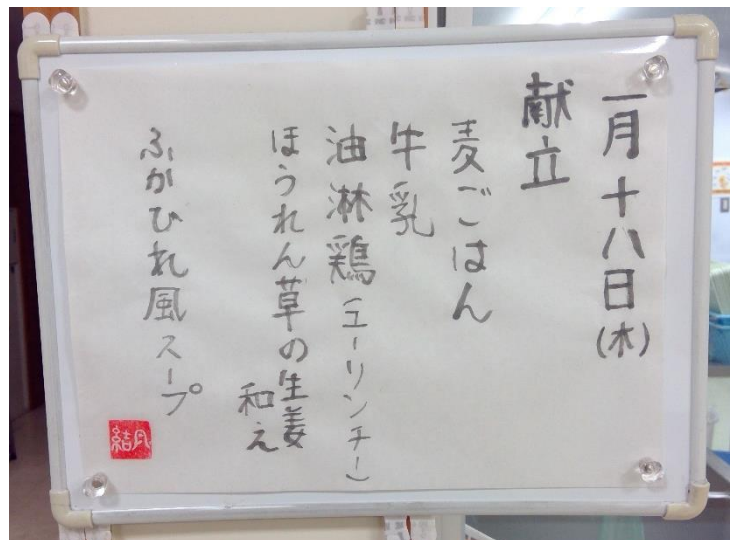 一月十八日(木)
献立
麦ごはん
牛乳
油淋鶏(ユーリンチー)
ほうれん草の生姜
和え
ふかひれ風スープ